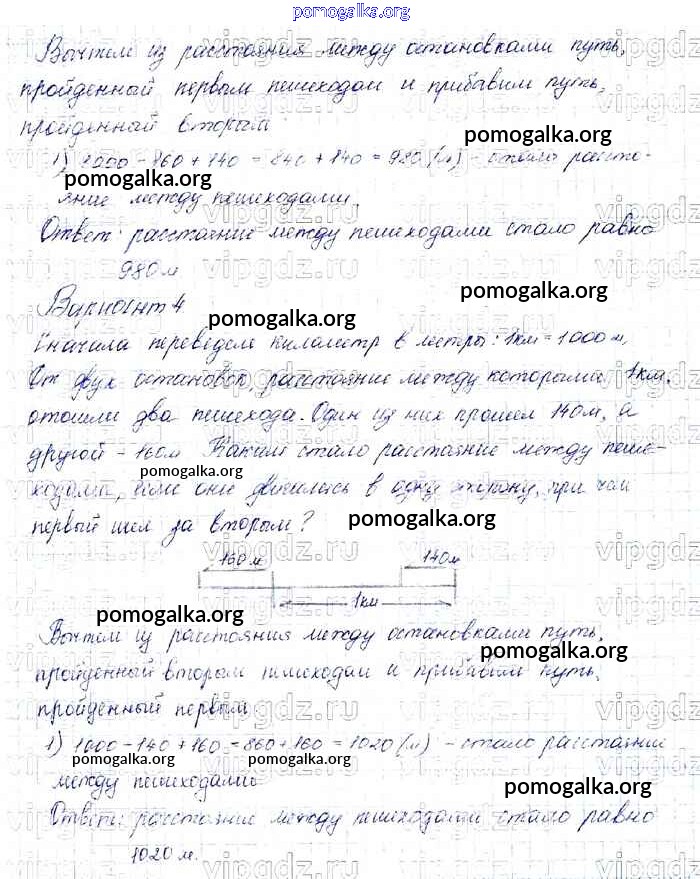 pomogalka.org
Вычтем из расстояния между остановками путь,
пройденный первым пешеходом и прибавим путь,
пройденный вторым
pomogalka.org
1) 1000 - 160 + 140 = 840 + 140 = 980 (м) - стало расстоя-
pomogalka.org
яние между пешеходами.
Ответ: расстояние между пешеходами стало равно
980 м
Вариант 4
pomogalka.org
pomogalka.org
Сначала переведем километр в метры: 1км = 1000 м.
От двух остановок, расстояние между которыми 1км,
отошли два пешехода. Один из них прошел 140м, а
другой - 160м Каким стало расстояние между пеше-
pomogalka.org
ходами, если они двигались в одну сторону, при чем
первый шел за вторым?
pomogalka.org
160 м 140м
1км
pomogalka.org
Вычтем из расстояния между остановками путь,
pomogalka.org
пройденный вторым пешеходом и прибавим путь,
пройденный первым
1) 1000 - 140 + 160 = 860 + 160 = 1020 (м) - стало расстояние
pomogalka.org pomogalka.org
между пешеходами
pomogalka.org
Ответ: расстояние между пешеходами стало равно
pomogalka.org
1020 м.
vipgdz.ru